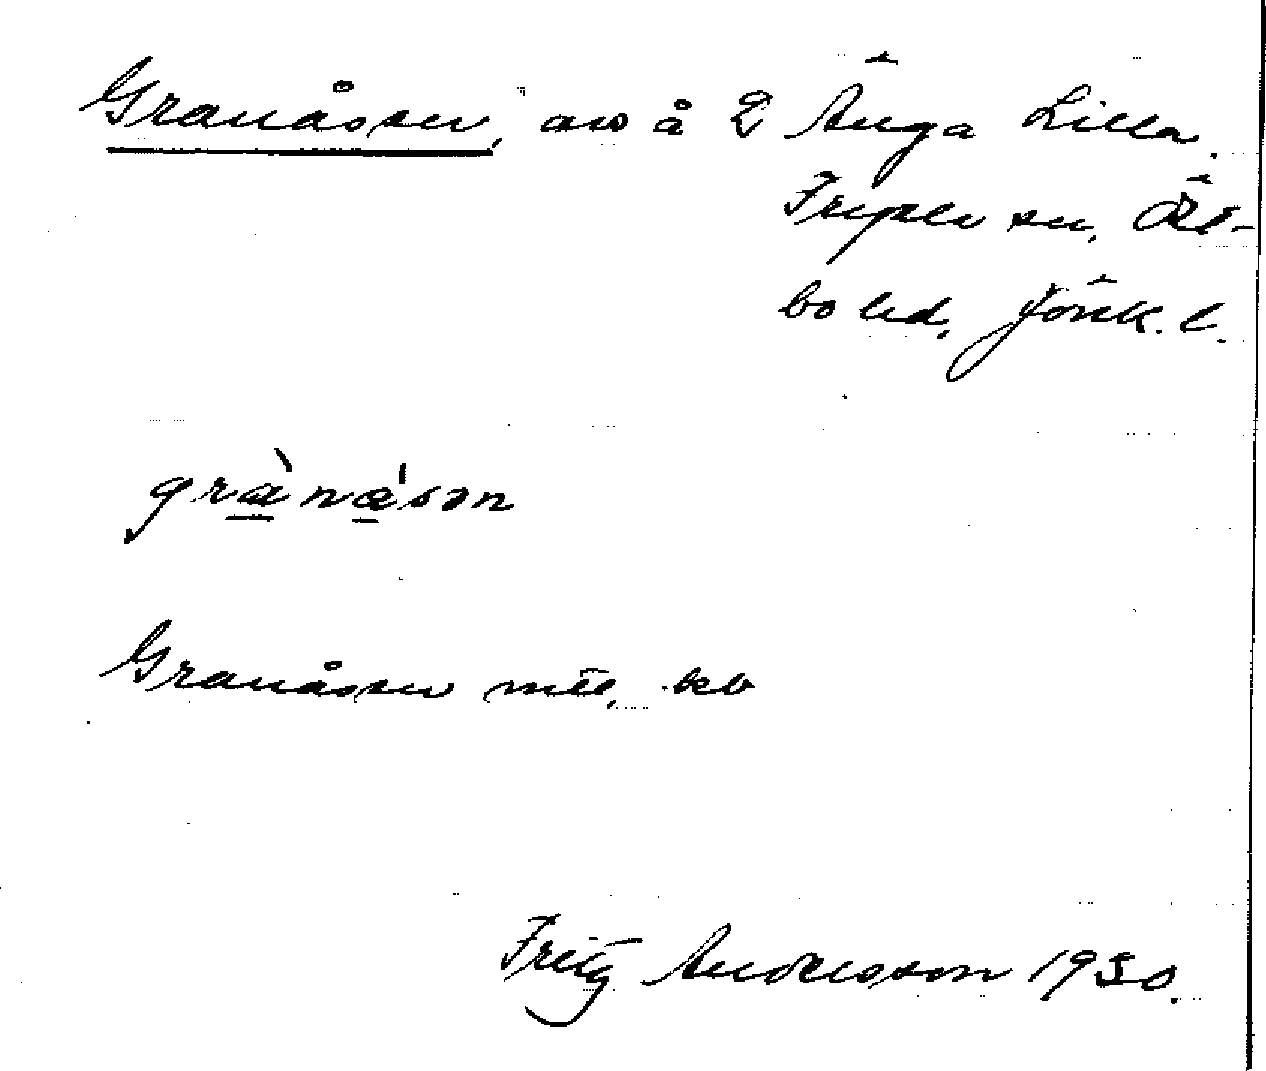 Granåsen, avs å 2 Änga Lilla.
Fryele sn, Öst-
bo hd, Jönk. l.
grà̱na̱̍sən
Granåsen kb
Fritz Andersson 1930.